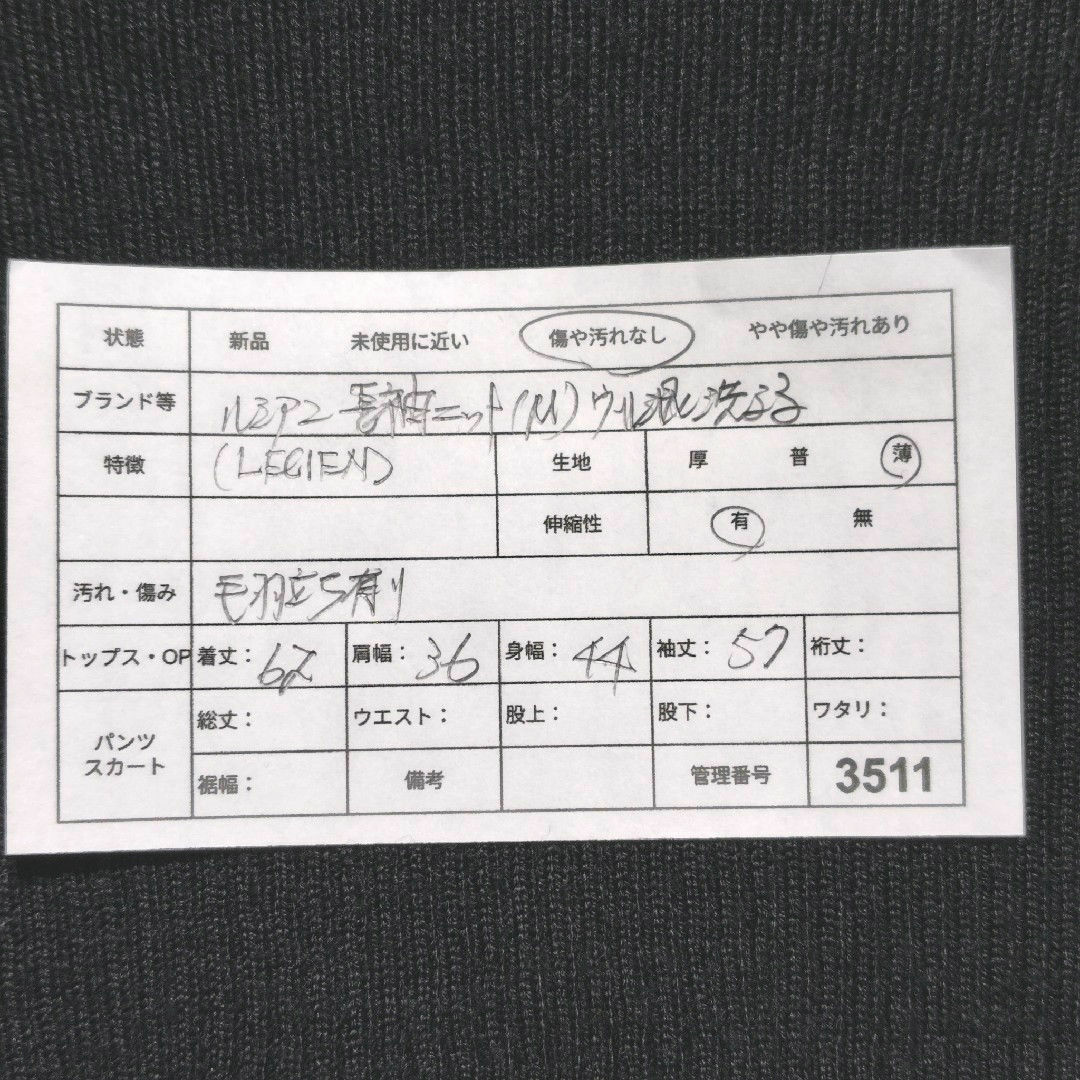 状態 新品 未使用に近い 傷や汚れなし やや傷や汚れあり
ブランド等 ルミアン 長袖ニット(M)ウール混 洗える
特徴 (LECIEN) 生地 厚 普 薄
伸縮性 有 無
汚れ・傷み 毛羽立ち有り
トップス・OP 着丈: 62 肩幅: 36 身幅: 44 袖丈: 57 裄丈:
パンツ スカート 総丈: ウエスト: 股上: 股下: ワタリ:
裾幅: 備考 管理番号 3511